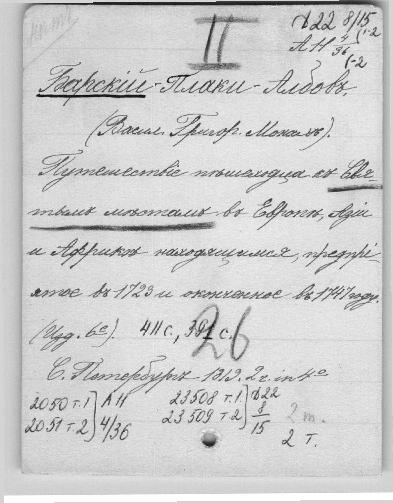 II
d22 8/15
A II 4/36 (1-2
(1-2
Барскій-Плаки-Албовъ.
(Васил. Григор. Монахъ).
Путешествіе пѣшеходца къ Свя-
тымъ мѣстамъ въ Европѣ, Азіи
и Африкѣ находящимся, предпрі-
ятое въ 1723 и оконченное въ 1747 году.
(Изд. 6е). 411 с., 391 с.
26
С. Петербургъ 1819. 2 ч. in 4о
2050 т. 1 } A II
2051 т. 2 } 4/36
23508 т. 1 } d22
23509 т. 2 } 8/15
2 т.
2 т.